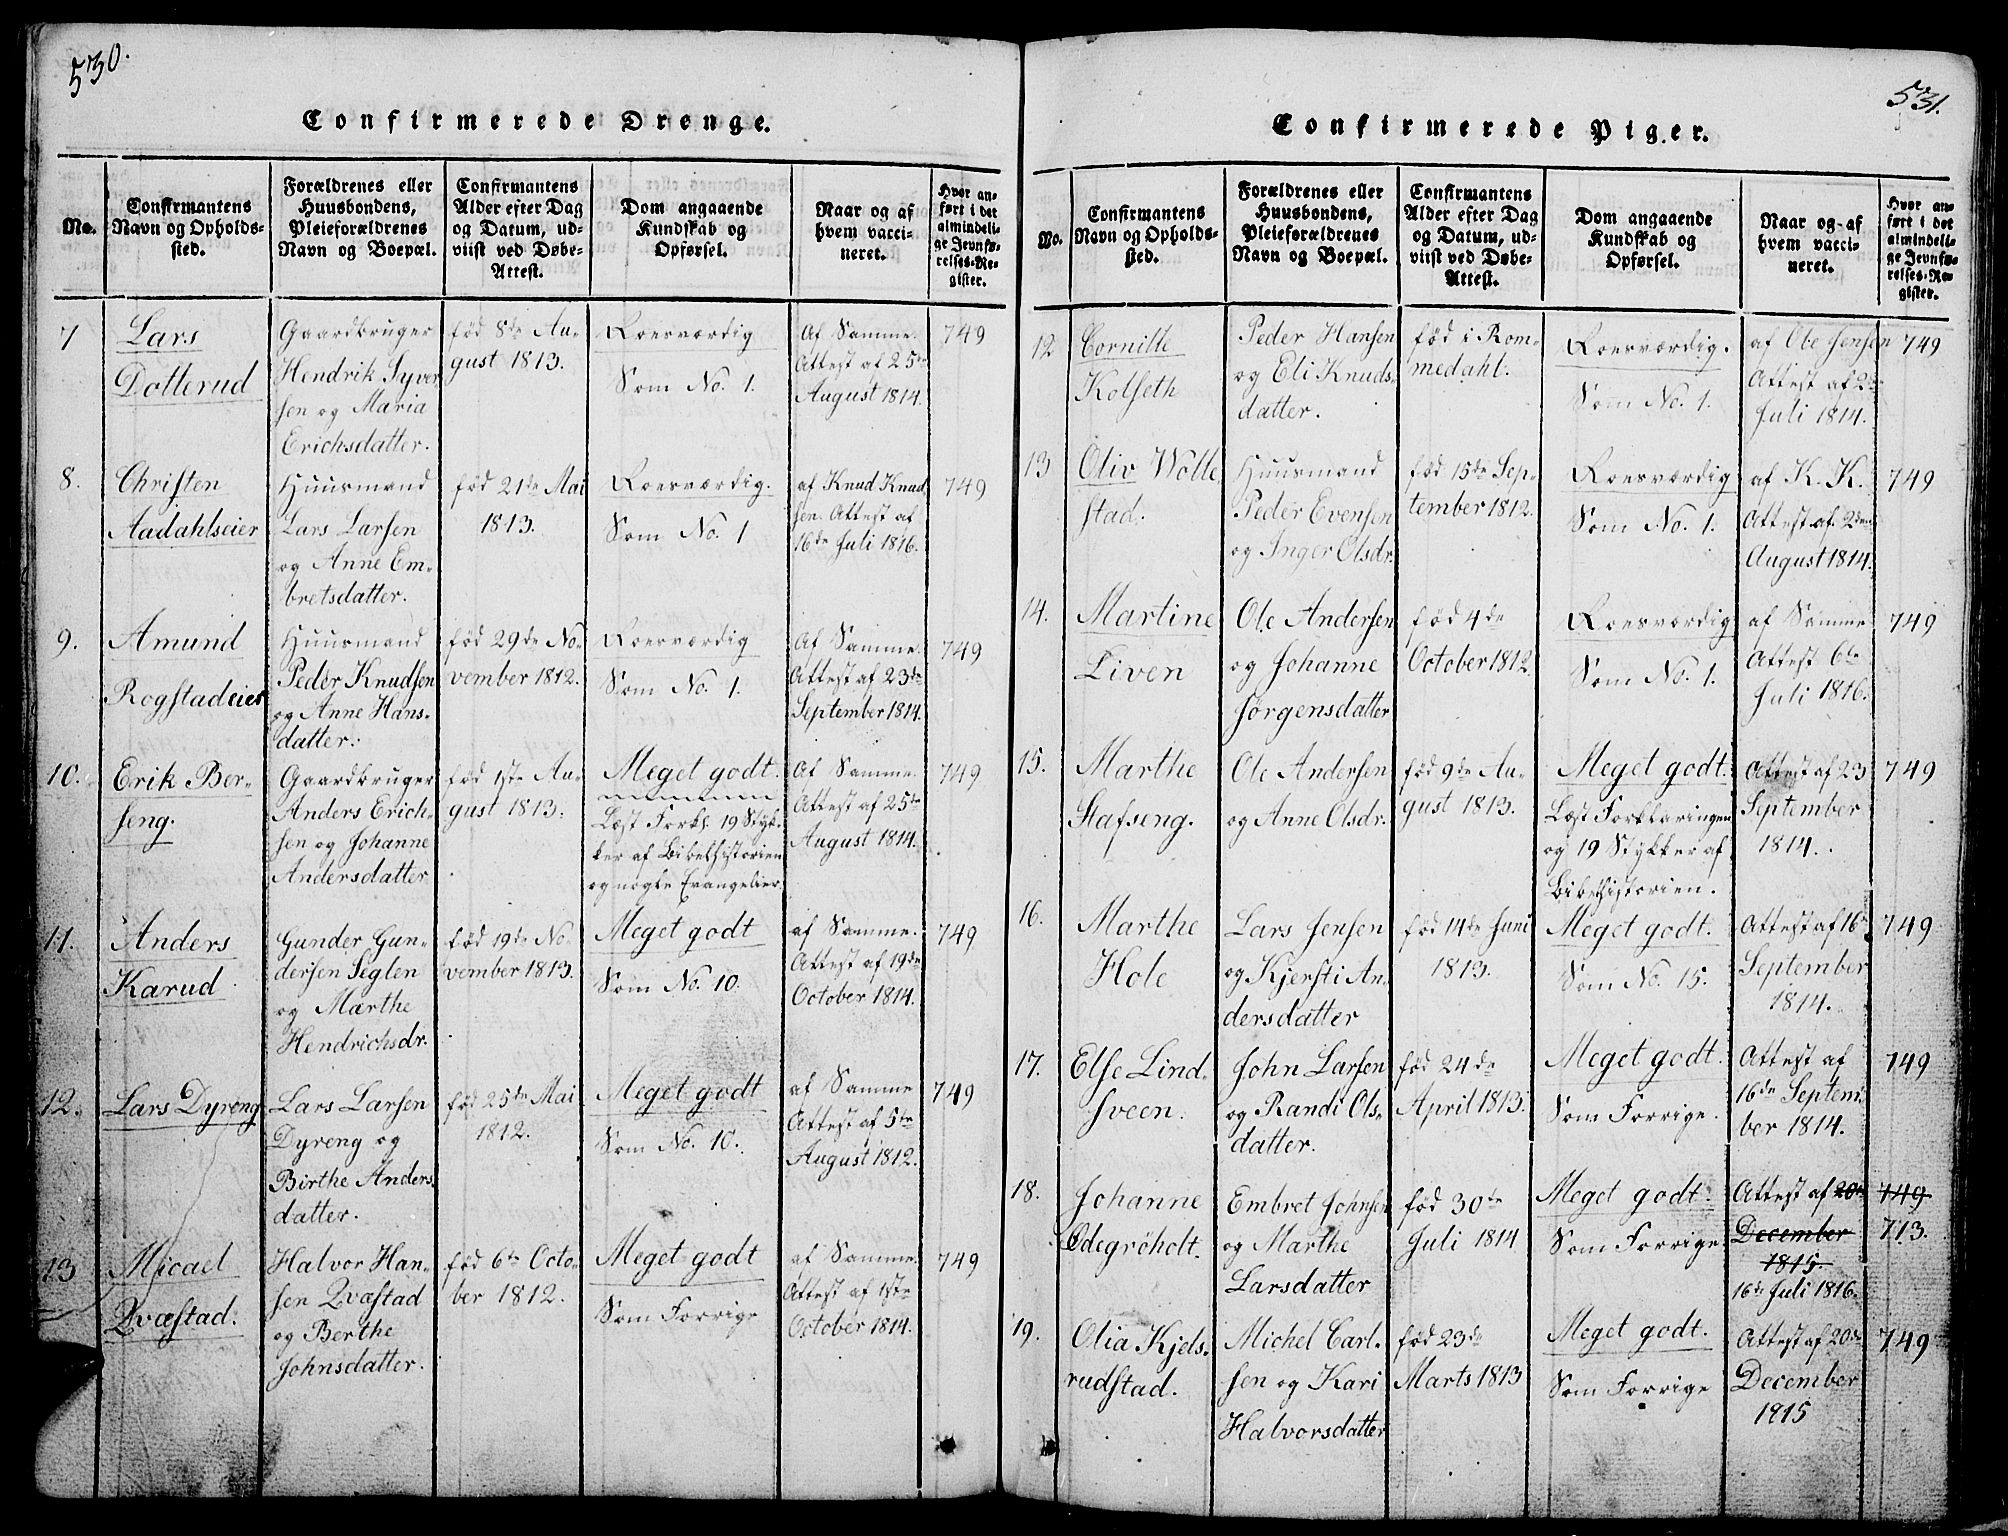 530.
Confirmerede Drenge.
No.
Confirmantens
Navn og Opholds-
sted.
Forældrenes eller
Huusbondens,
Pleieforældrenes
Navn og Boepæl.
Confirmantens
Alder efter Dag
og Datum, ud-
viist ved Døbe-
Attest.
Dom angaaende
Kundskab og
Opførsel.
Naar og af
hvem vacci-
neret.
Hvor an-
ført i det
almindeli-
ge Jevnfø-
relses-Re-
gister.
7
Lars
Dotterud
Gaardbruger
Hendrik Syver
sen og Maria
Erichsdatter.
fød 8de Au-
gust 1813.
Roesværdig
Som No. 1.
Af Samme.
Attest af 25de
August 1814.
749
8.
Christen
Aadahlseier
Huusmand
Lars Larsen
og Anne Em-
bretsdatter.
fød 21de Mai
1813.
Roesværdig.
Som No. 1
af Knud Knud
sen. Attest af
16de Juli 1816.
749
9.
Amund
Rogstadeier
Huusmand
Peder Knudsen
og Anne Hans-
datter.
fød 29de No-
vember 1812.
Roesværdig
Som No. 1.
Af Samme.
Attest af 23de
September 1814.
749
10.
Erik Ber-
seng.
Gaardbruger
Anders Erich-
sen og Johanne
Andersdatter
fød 1ste Au-
gust 1813.
Meget godt.
Læst Forkl. 19 Styk-
ker af Bibelhistorien
og nogle Evangelier.
Af Samme.
Attest af 25de
August 1814.
749
11.
Anders
Karud
Gunder Gun-
dersen Seglen
og Marthe
Hendrichsdr.
fød 19de No-
vember 1813.
Meget godt
Som No. 10.
af Samme.
Attest af 19de
October 1814.
749
12.
Lars Dyreng
Lars Larsen
Dyreng og
Birthe Anders
datter.
fød 25de Mai
1812.
Meget godt
Som No. 10.
af Samme
Attest af 5te
August 1812.
749
13
Micael
Qvæstad.
Halvor Han-
sen Qvæstad
og Berthe
Johnsdatter.
fød 6te Octo-
ber 1812.
Meget godt
Som Forrige
af Samme.
Attest af 1ste
October 1814.
749
531.
Confirmerede Piger.
No.
Confirmantens
Navn og Opholds-
sted.
Forældrenes eller
Huusbondens,
Pleieforældrenes
Navn og Boepæl.
Confirmantens
Alder efter Dag
og Datum, ud-
viist ved Døbe-
Attest.
Dom angaaende
Kundskab og
Opførsel.
Naar og af
hvem vacci-
neret.
Hvor an-
ført i det
almindeli-
ge Jevnfø-
relses-Re-
gister.
12
Cornille
Kolseth
Peder Hansen
og Eli Knuds-
datter.
fød i Rom-
medahl.
Roesværdig.
Som No. 1.
af Ole Jensen
Attest af 2de
Juli 1814.
749
13
Oliv Wolle
stad.
Huusmand
Peder Evensen
og Inger Olsdr.
fød 15de Sep-
tember 1812.
Roesværdig
Som No. 1.
af K. K.
Attest af 2den
August 1814.
749
14.
Martine
Liven
Ole Andersen
og Johanne
Jørgensdatter
fød 4de
October 1812.
Roesværdig
Som No. 1.
af Samme
Attest 6te
Juli 1816.
749
15.
Marthe
Stafseng.
Ole Andersen
og Anne Olsdr.
fød 9de Au-
gust 1813.
Meget godt.
Læst Forklaringen
og 19 Stykker af
Bibelhistorien.
Attest af 23
September
1814.
749
16.
Marthe
Hole
Lars Jensen
og Kjersti An-
dersdatter
fød 14de Juni
1813.
Meget godt.
Som No. 15.
Attest af 16
September
1814.
749
17.
Else Lind-
sveen.
John Larsen
og Randi Ols-
datter.
fød 24de
April 1813.
Meget godt.
Som Forrige.
Attest af
16de Septem
ber 1814.
749
18.
Johanne
Ødegröholt.
Embret Johnsen
og Marthe
Larsdatter
fød 30te
Juli 1814
Meget godt.
Som Forrige
Attest af 20de
December
1815.
16de Juli 1816.
749
713.
19.
Olia Kjels-
rudstad.
Michel Carl-
sen og Kari
Halvorsdatter
fød 23de
Marts 1813
Meget godt.
Som Forrige
Attest af 20de
December
1915
749